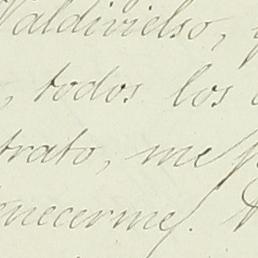 Valdivielso,
, todos los
trato, me
necerme.